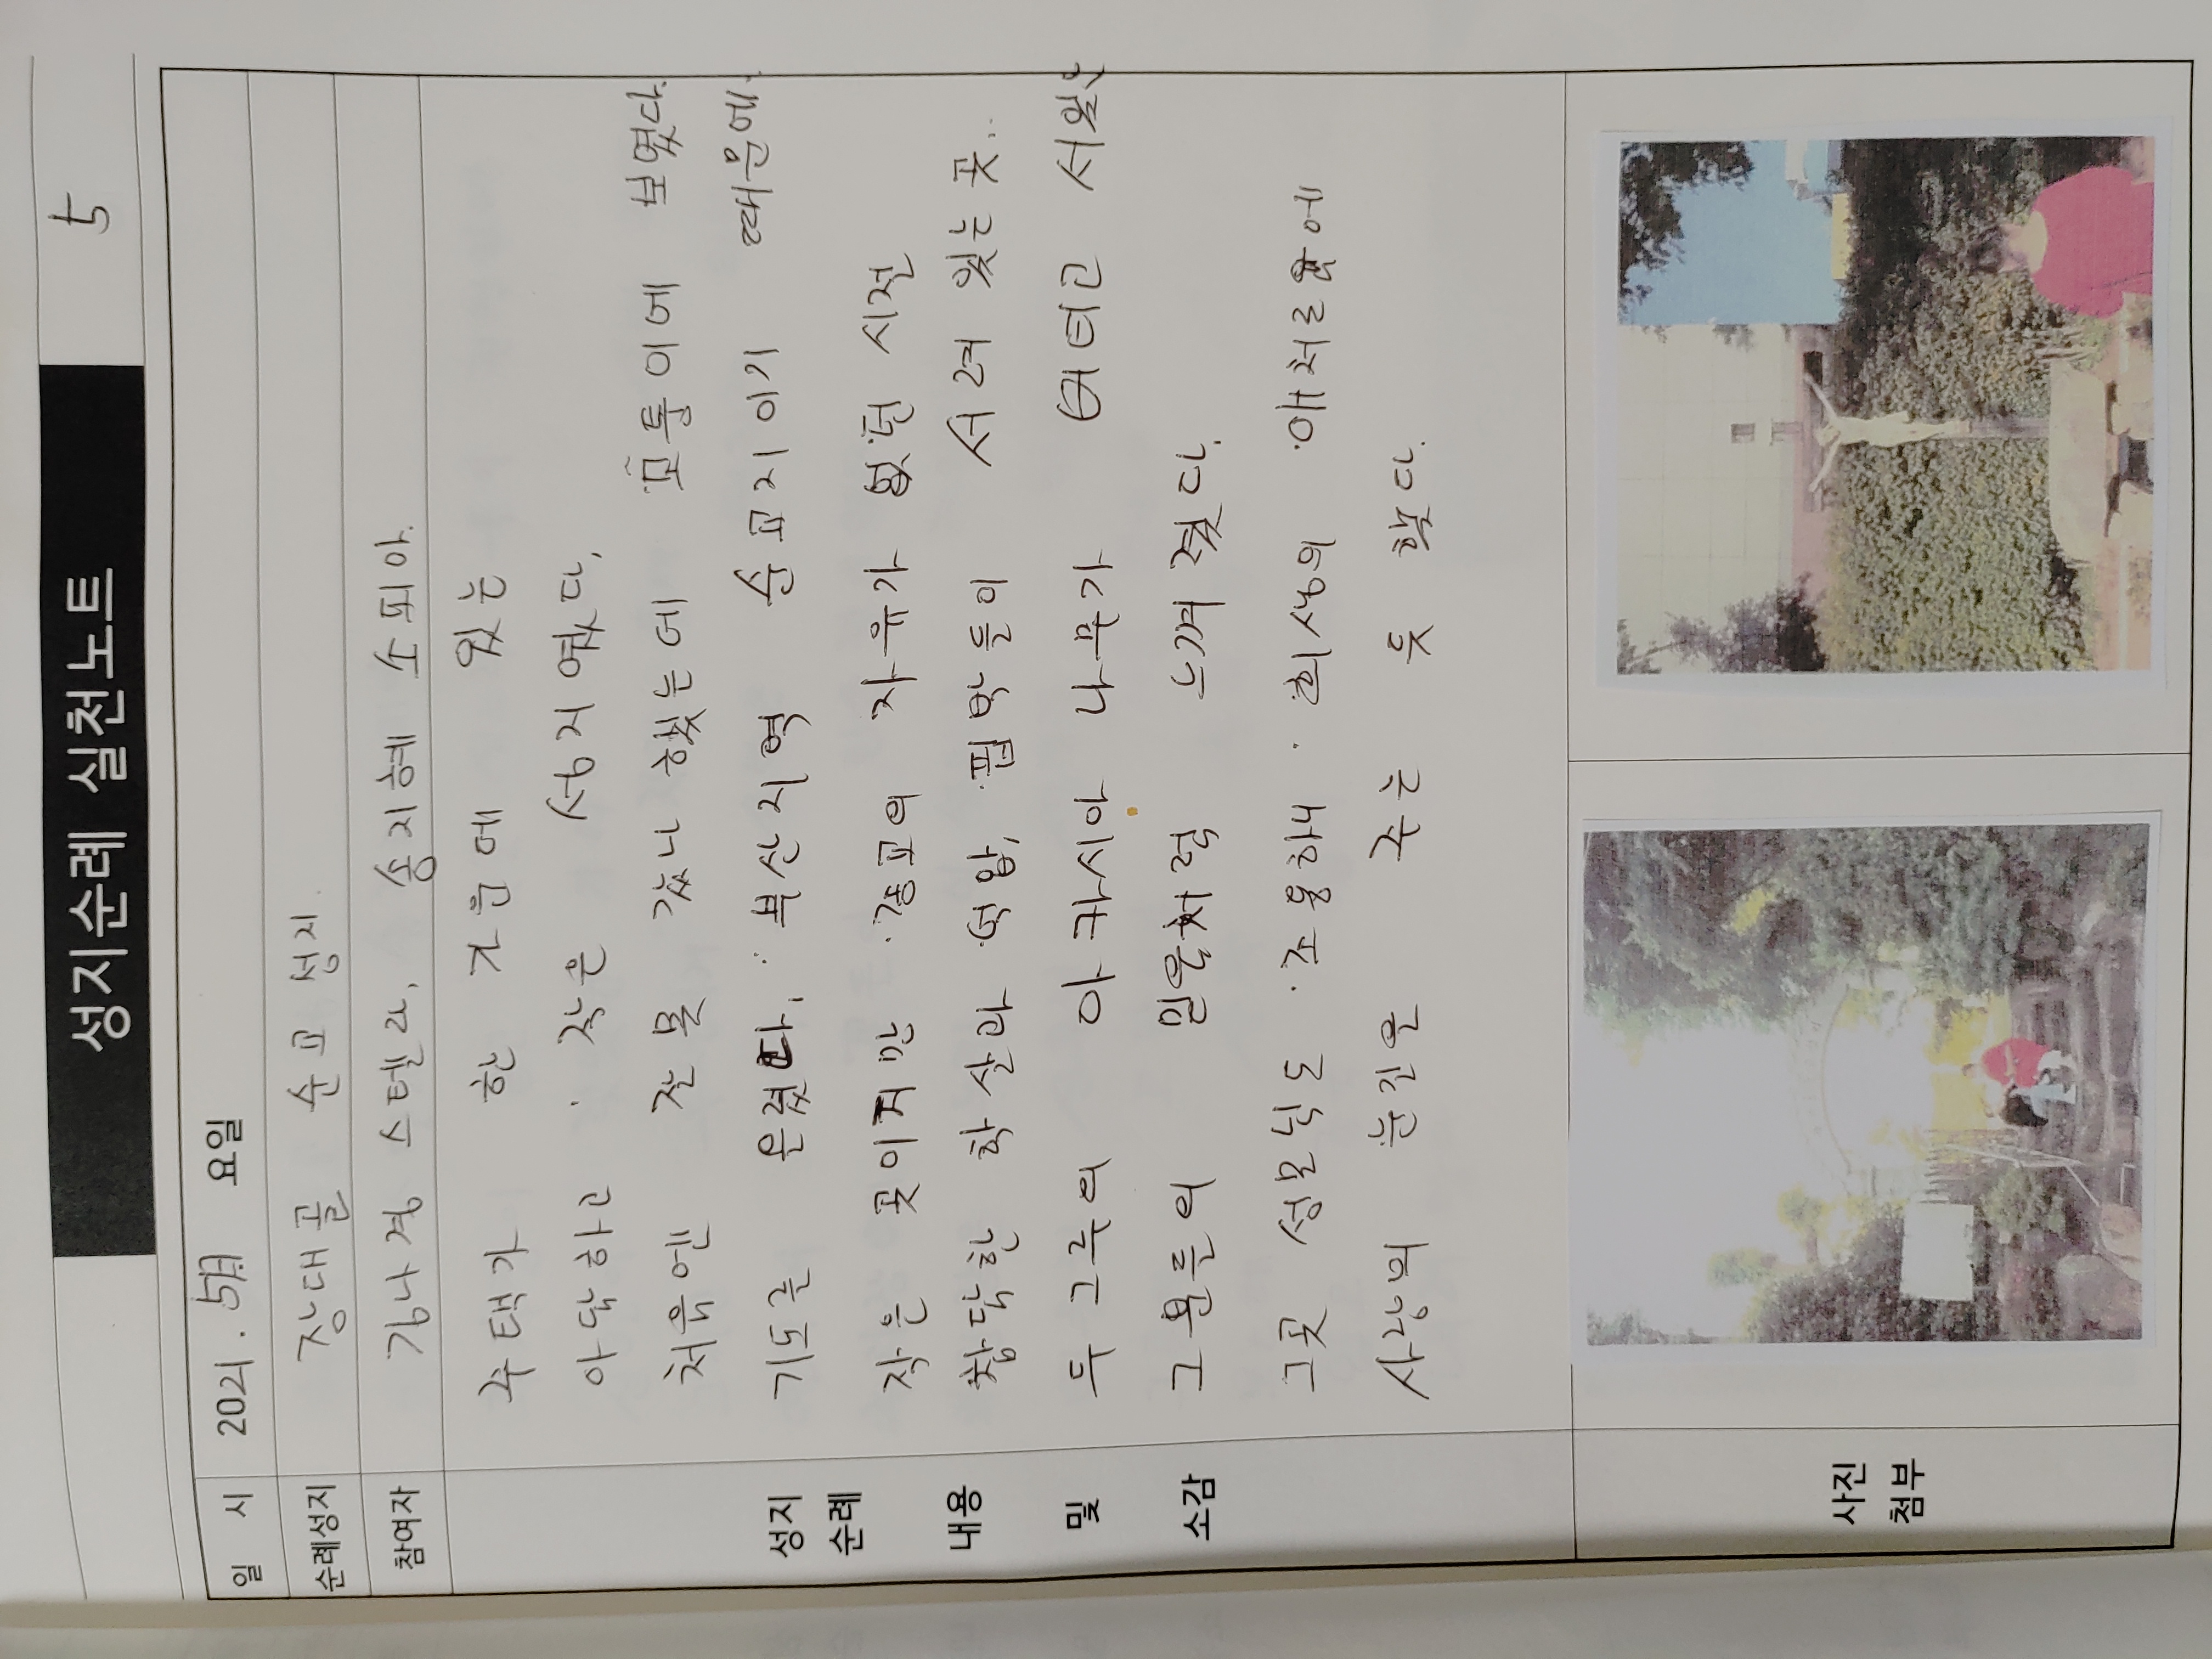 5
성지순례 실천노트
일 시 2021. 5月 요일
순례성지 장대골 순교성지.
참여자 김나경 스텔라, 송지혜 소피아.
주택가 한 가운데 있는
아담하고 작은 성지였다.
처음엔 잘못 갔나 했는데 모퉁이에 보였다.
기도를 부산지역 순교지이기 때문에.
작은 곳이지만 종교의 자유가 없던 시절
참담한 학살과 억압, 핍박들이 서려 있는 곳..
두 그루의 아카시아 나무가 버티고 서있는
그분들의 믿음처럼 느껴졌다.
그곳 성모님도 조용하게 희생의 애처로움에
사랑의 눈길을 주는 듯 했다.
성지
순례
내용
및
소감
사진
첨부